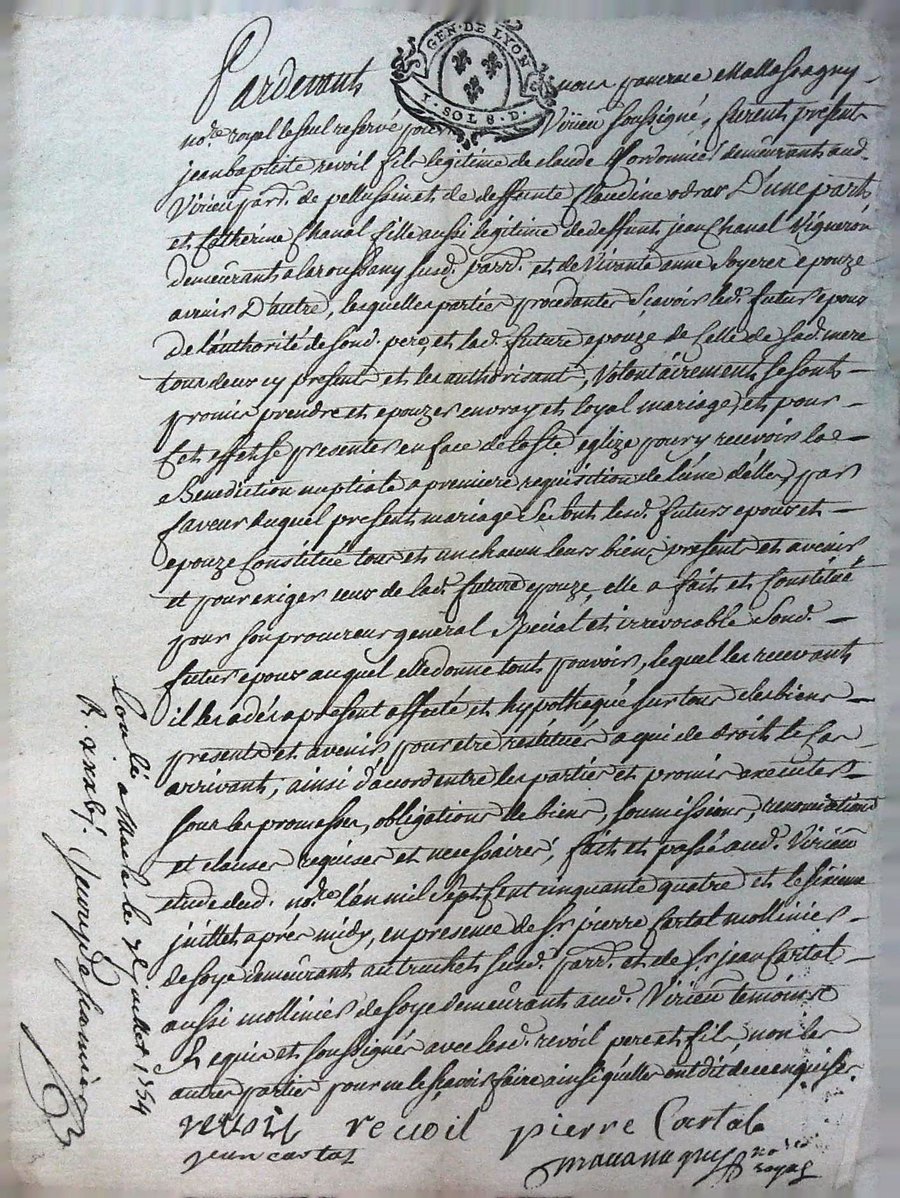 GEN. DE LYON
1. SOL 8. D.
Pardevant nous
no.re royal le seul reservé pour Virieu soussigné, furent present
jean baptiste revoil fils legitime de claude Cordonnier demeurant aud.
Virieu parr. de pellussin et de deffainte Claudine odras D'une part
et Catherine Chaval fille aussi legitime de deffunt jean Chaval Vigneron
demeurant a la roussany susd. parr. et de Vivante anne epouze
avenir D'autre, lesquelles parties procedantes sçavoir led. futur epoux
de l'authorité de sond. pere, et lad. future epouze de Celle de sad. mere
tous deux cy present et les authorisant, Volontairement se sont
promis prendre et epouzer en vray et loyal mariage, et pour
Cet effet se presenter en face de la ste. eglize pour y recevoir la
Benediction nuptiale a premiere requisition de l'une d'elles, par
faveur duquel present mariage se sont lesd. futurs epoux et
epouze Constitué tous et un chacun leurs biens presents et avenir
et pour exiger ceux de lad. future epouze, elle a fait et Constitué
pour son procureur general Special et irrevocable Sond.
futur epoux auquel elle donne tout pouvoir, lequel les recevant
il les a dés a present affecté et hypothequé sur tous ses biens
presents et avenir, pour etre restitués a qui de droit le Cas
arrivant, ainsi d'acord entre les parties et promis executer
sous les promesses, obligations de biens, soumissions, renonciations
et clauses requises et necessaires, fait et passé aud. Virieu
etude dud. no.re l'én mil Sept Cent cinquante quatre et le sixieme
juillet aprés midy, en presence de Sr. pierre Cartal mollinier
de soye demeurant au trucket susd. parr. et de Sr. jean Cartal
aussi mollinier de soye demeurant aud. Virieu temoins
Requis et soussignés avec lesd. revoil pere et fils non les
autres parties pour ne le sçavoir faire ainsi qu'elles ont dit de ce enquises.
revoil revoil pierre Cartal
jean cartal
no.re royal
Con.lé a le juillet 1754
R